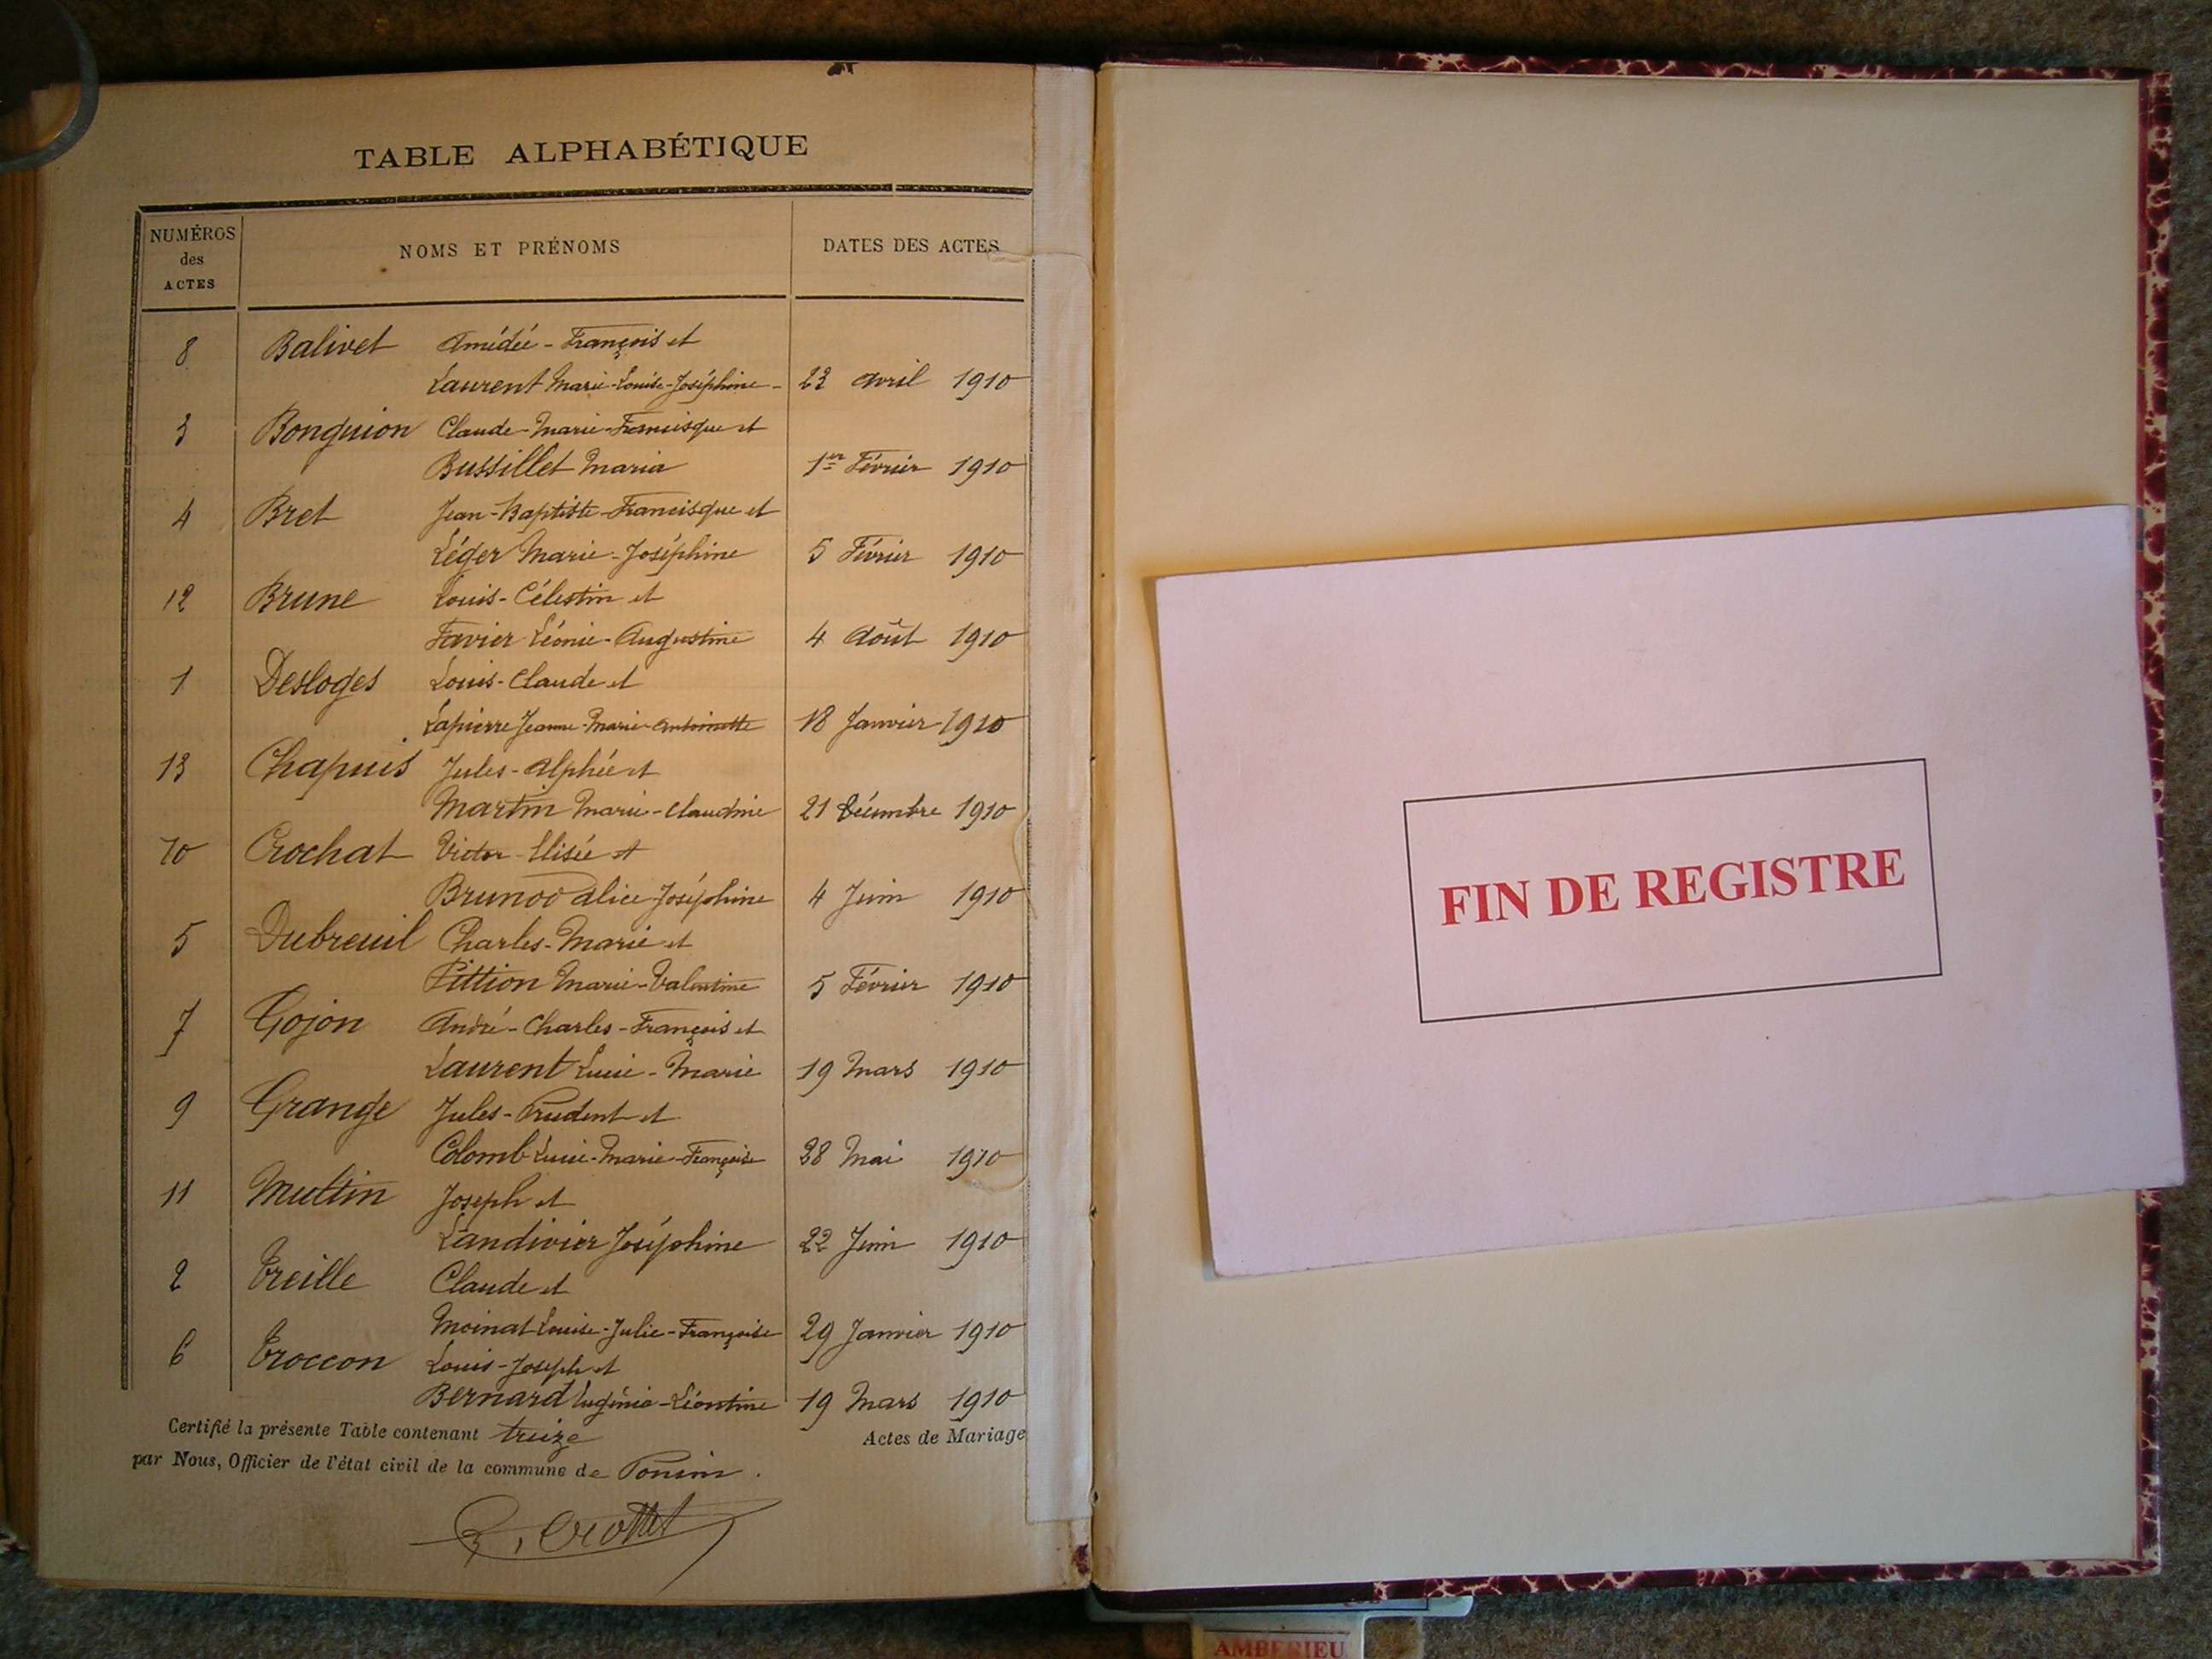 TABLE ALPHABÉTIQUE
NUMÉROS des ACTES
NOMS ET PRÉNOMS
DATES DES ACTES
8 Balivet Amédée-François et
Laurent Marie-Louise-Joséphine - 23 avril 1910
3 Bonguion Claude-Marie-Francisque et
Bussillet Maria 1er Février 1910
4 Bret Jean-Baptiste-Francisque et
Léger Marie-Joséphine 5 Février 1910
12 Brune Louis-Célestin et
Favier Léonie-Augustine 4 Août 1910
1 Desloges Louis-Claude et
Lapierre Jeanne-Marie-Antoinette 18 Janvier 1910
13 Chapuis Jules-Alphée et
Martin Marie-Claudine 21 Décembre 1910
10 Crochat Victor-Elisée et
Brunod Alice-Joséphine 4 Juin 1910
5 Dubreuil Charles-Marie et
Pittion Marie-Valentine 5 Février 1910
7 Gojon André-Charles-François et
Laurent Lucie-Marie 19 Mars 1910
9 Grange Jules-Prudent et
Colomb Lucie-Marie-Françoise 28 Mai 1910
11 Muttin Joseph et
Landivier Joséphine 22 Juin 1910
2 Treille Claude et
Moinat Louise-Julie-Françoise 29 Janvier 1910
6 Troccon Louis-Joseph et
Bernard Eugénie-Léontine 19 Mars 1910
Certifié la présente Table contenant treize Actes de Mariage
par Nous, Officier de l'état civil de la commune de Poncin.
Crottet
FIN DE REGISTRE
AMBERIEU